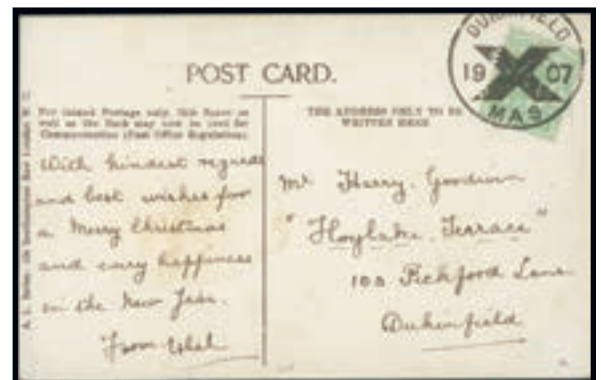 DUKINFIELD
19 X 07
MAS
POST CARD.
For Inland Postage only, this Space as
well as the Back may now be used for
Communication (Post Office Regulation).
THE ADDRESS ONLY TO BE
WRITTEN HERE
With kindest regards
and best wishes for
a Merry Christmas
and every happiness
in the New Year.
From
Mr Harry Goodwin
"Hoylake Terrace"
100 Pickford Lane
Dukinfield